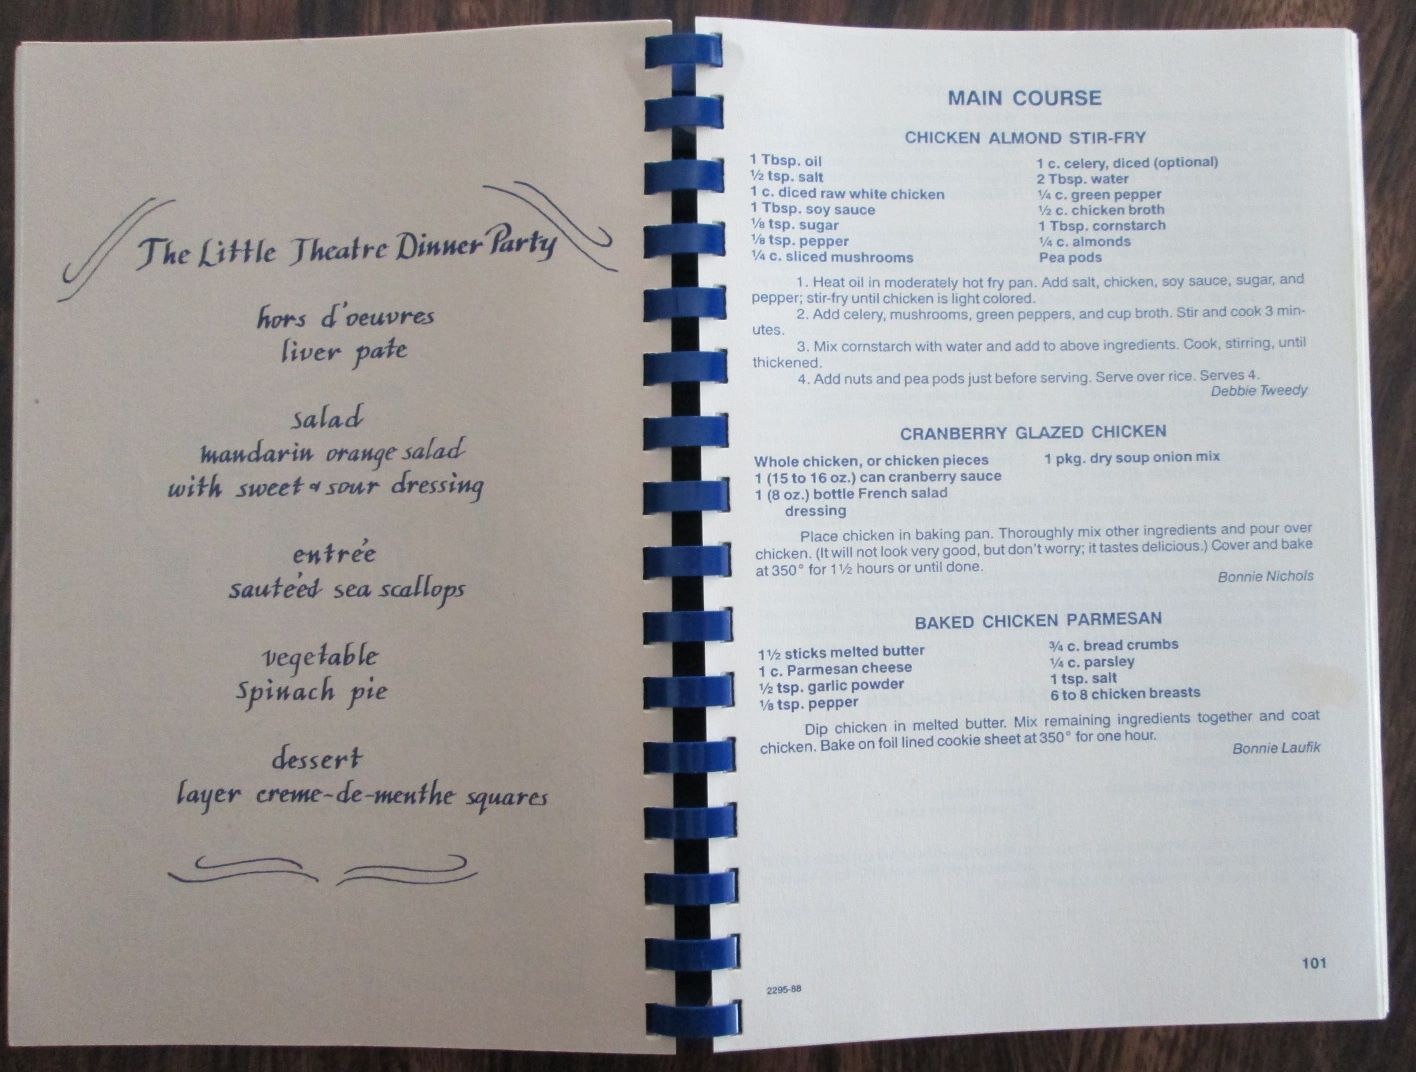 The Little Theatre Dinner Party
hors d'oeuvres
liver pate
salad
mandarin orange salad
with sweet & sour dressing
entrée
sauteéd sea scallops
vegetable
Spinach pie
dessert
layer creme-de-menthe squares
MAIN COURSE
CHICKEN ALMOND STIR-FRY
1 Tbsp. oil
½ tsp. salt
1 c. diced raw white chicken
1 Tbsp. soy sauce
⅛ tsp. sugar
⅛ tsp. pepper
¼ c. sliced mushrooms
1 c. celery, diced (optional)
2 Tbsp. water
¼ c. green pepper
½ c. chicken broth
1 Tbsp. cornstarch
¼ c. almonds
Pea pods
1. Heat oil in moderately hot fry pan. Add salt, chicken, soy sauce, sugar, and
pepper; stir-fry until chicken is light colored.
2. Add celery, mushrooms, green peppers, and cup broth. Stir and cook 3 min-
utes.
3. Mix cornstarch with water and add to above ingredients. Cook, stirring, until
thickened.
4. Add nuts and pea pods just before serving. Serve over rice. Serves 4.
Debbie Tweedy
CRANBERRY GLAZED CHICKEN
Whole chicken, or chicken pieces
1 (15 to 16 oz.) can cranberry sauce
1 (8 oz.) bottle French salad
dressing
1 pkg. dry soup onion mix
Place chicken in baking pan. Thoroughly mix other ingredients and pour over
chicken. (It will not look very good, but don't worry; it tastes delicious.) Cover and bake
at 350° for 1½ hours or until done.
Bonnie Nichols
BAKED CHICKEN PARMESAN
1½ sticks melted butter
1 c. Parmesan cheese
½ tsp. garlic powder
⅛ tsp. pepper
¾ c. bread crumbs
¼ c. parsley
1 tsp. salt
6 to 8 chicken breasts
Dip chicken in melted butter. Mix remaining ingredients together and coat
chicken. Bake on foil lined cookie sheet at 350° for one hour.
Bonnie Laufik
2295-88
101